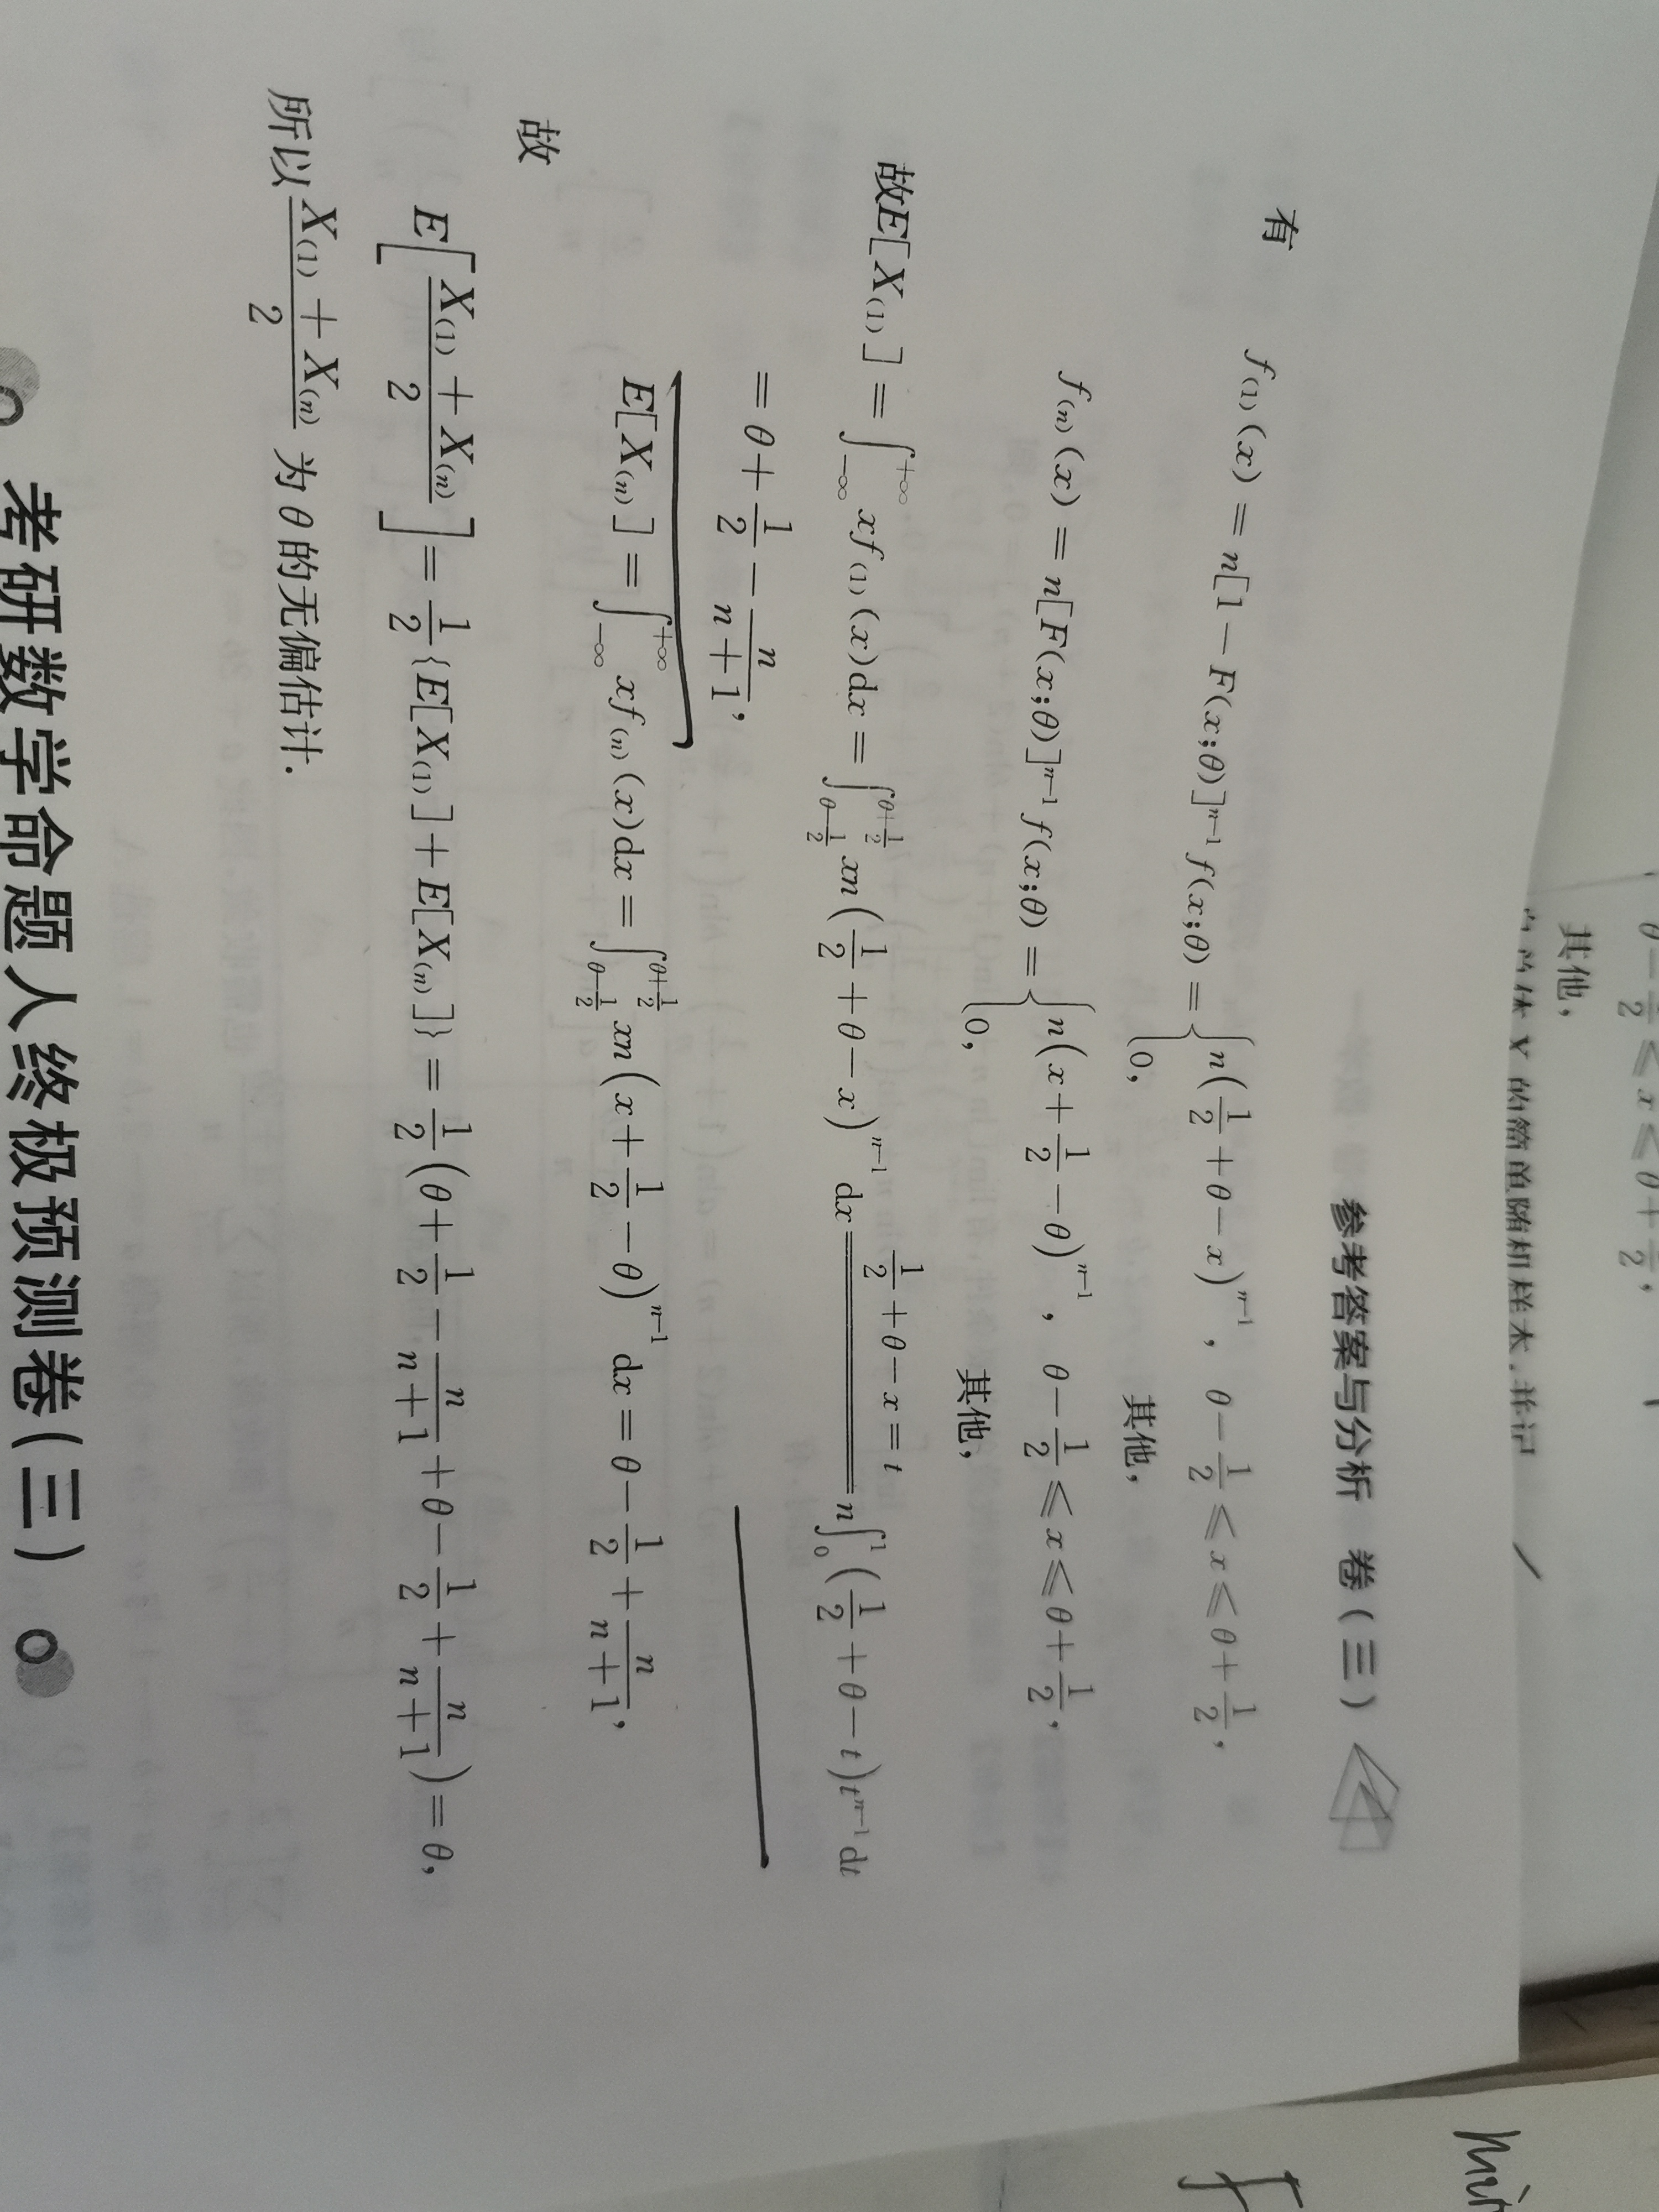 θ-1/2≤x≤θ+1/2,
其他,
参考答案与分析 卷(三)
有 f₍₁₎(x)=n[1-F(x;θ)]ⁿ⁻¹f(x;θ)={n(1/2+θ-x)ⁿ⁻¹, θ-1/2≤x≤θ+1/2,
0, 其他,
f₍ₙ₎(x)=n[F(x;θ)]ⁿ⁻¹f(x;θ)={n(x+1/2-θ)ⁿ⁻¹, θ-1/2≤x≤θ+1/2,
0, 其他,
故E[X₍₁₎]=∫_{-∞}^{+∞}xf₍₁₎(x)dx=∫_{θ-1/2}^{θ+1/2}xn(1/2+θ-x)ⁿ⁻¹dx \xlongequal{1/2+θ-x=t} n∫_0^1(1/2+θ-t)tⁿ⁻¹dt
=θ+1/2-n/(n+1),
E[X₍ₙ₎]=∫_{-∞}^{+∞}xf₍ₙ₎(x)dx=∫_{θ-1/2}^{θ+1/2}xn(x+1/2-θ)ⁿ⁻¹dx=θ-1/2+n/(n+1),
故
E[(X₍₁₎+X₍ₙ₎)/2]=1/2{E[X₍₁₎]+E[X₍ₙ₎]}=1/2(θ+1/2-n/(n+1)+θ-1/2+n/(n+1))=θ,
所以(X₍₁₎+X₍ₙ₎)/2为θ的无偏估计.
考研数学命题人终极预测卷(三)